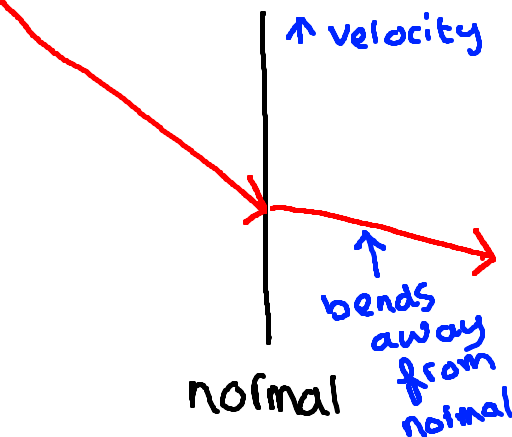 ↑ velocity
bends
away
from
normal
normal